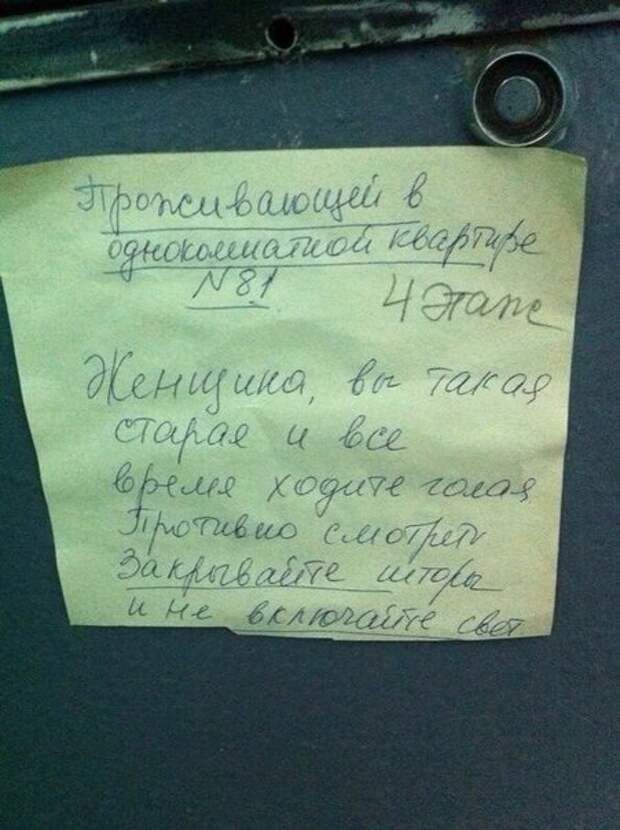 Проживающей в
однокомнатной квартире
N 81 4 этаж
Женщина, вы такая
старая и все
время ходите голая
Противно смотреть
Закрывайте шторы
и не включайте свет